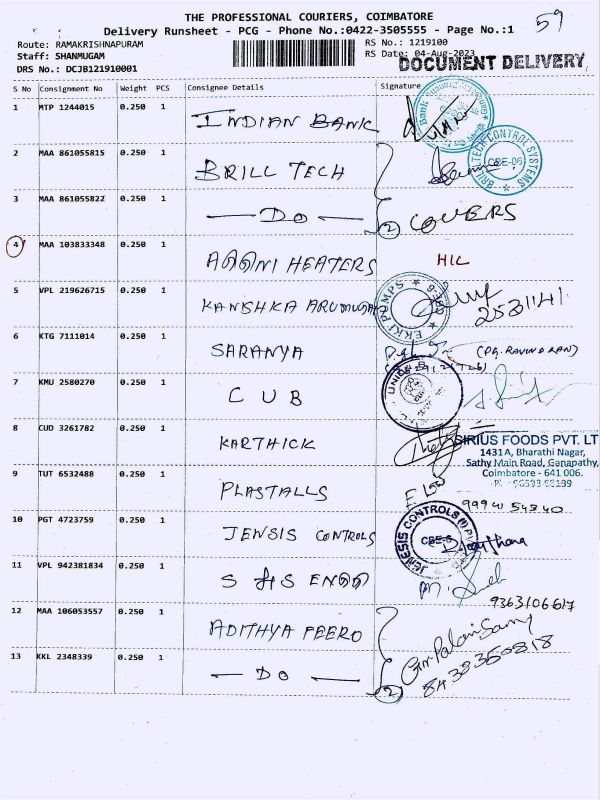 THE PROFESSIONAL COURIERS, COIMBATORE
59
Delivery Runsheet - PCG - Phone No.:0422-3505555 - Page No.:1
Route: RAMAKRISHNAPURAM
RS No.: 1219100
Staff: SHANMUGAM
RS Date: 04-Aug-2023
DOCUMENT DELIVERY
DRS No.: DCJB121910001
S No Consignment No Weight PCS Consignee Details Signature
1 MTP 1244015 0.250 1 INDIAN BANK
2 MAA 861055815 0.250 1 BRILL TECH
BRILLTECH CONTROL SYSTEMS
CBE-06
3 MAA 861055822 0.250 1 DO 2 COVERS
4 MAA 103833348 0.250 1 AGGNI HEATERS HIL
5 VPL 219626715 0.250 1 KANISHKA ARUMUGA
EKKI PUMPS
2531141
6 KTG 7111014 0.250 1 SARANYA
(PG. RAVINDRAN)
7 KMU 2580270 0.250 1 CUB
UNION
8 CUD 3261782 0.250 1 KARTHICK
SIRIUS FOODS PVT. LT
1431A, Bharathi Nagar,
Sathy Main Road, Ganapathy,
Coimbatore - 641 006.
9 TUT 6532488 0.250 1 PLASTALLS
99940 54340
10 PGT 4723759 0.250 1 JENSIS CONTROLS
JENESIS CONTROLS (I) PVT
CBE-6
11 VPL 942381834 0.250 1 S & S ENGG
9363106617
12 MAA 106053557 0.250 1 ADITHYA FEERO
13 KKL 2348339 0.250 1 DO 2
8438350818